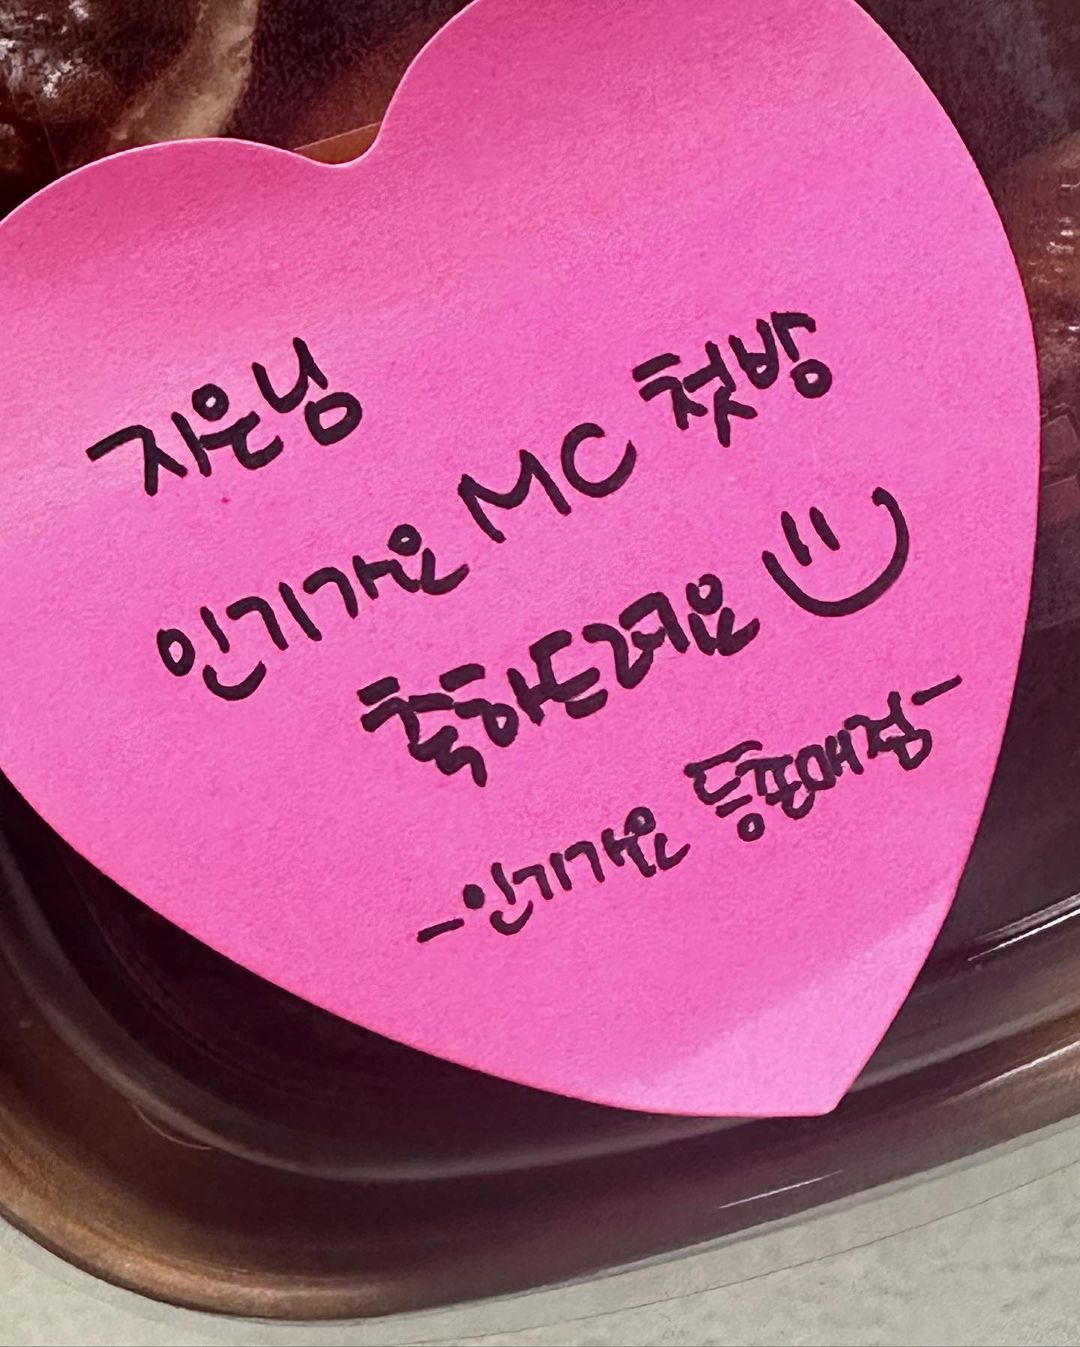 지은님
인기가요 MC 첫방
축하드려요
-인기가요 등촌매점-